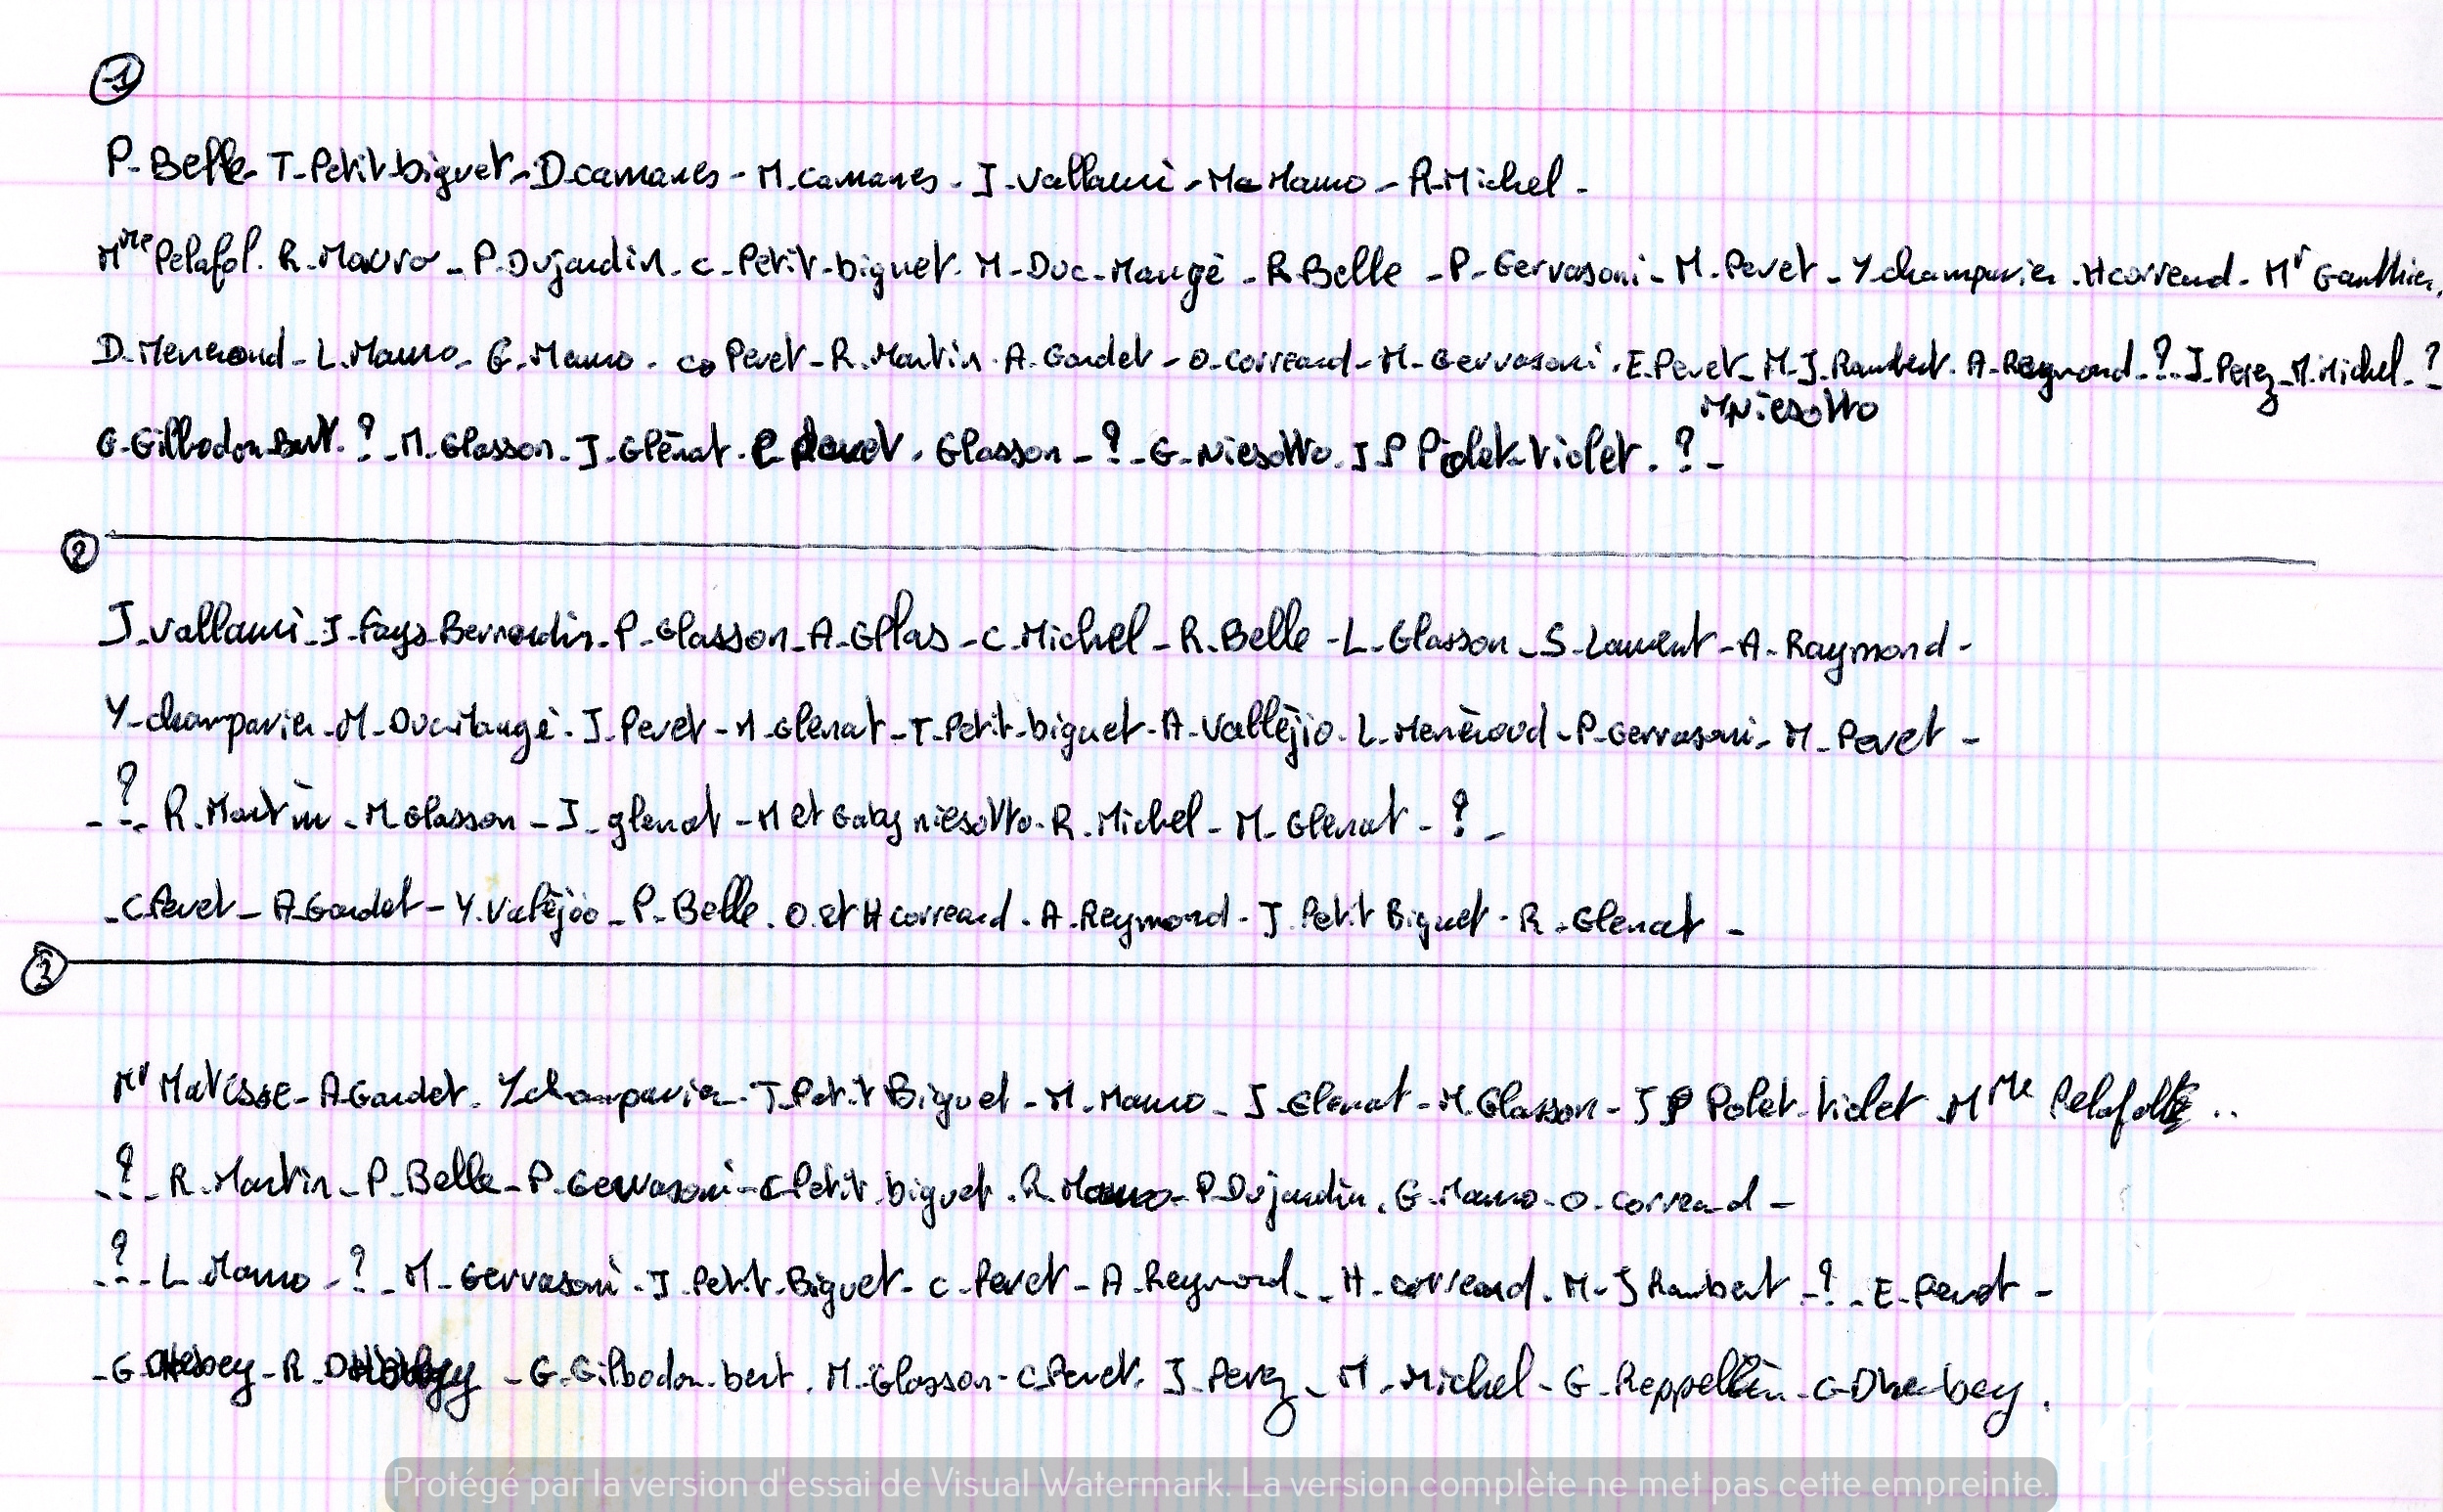 1
P. Belle - T. Petit-biguet - D. camanes - M. camanes - J. Vallami - Me Mauro - R. Michel -
Mme Pelafol. R. Mauro - P. Dujardin - C. Petit-biguet. M. Duc-Maugé - R. Belle - P. Gervasoni - M. Pevet - Y. champavier. H correard - Mr Gauthier.
D. Meneroud - L. Mauro - G. Mauro - C. Pevet - R. Martin - A. Gardet - O. Correard - M. Gervasoni. E. Pevet - M. J. Rambert. A. Raymond - ? - J. Perez - M. Michel - ?
M Niesotto
G. Gilbodon-Bert. ? - M. Glasson - J. Glénat. Pevet. Glasson - ? - G. Niesotto. J P Piolet-Violet. ? -
2
J. Vallami - J. Fays-Bernardin - P. Glasson - A. Gllas - C. Michel - R. Belle - L. Glasson - S. Laurent - A. Raymond -
Y. champavier - M. Duc Maugé - J. Pevet - M. Glenat - T. Petit-biguet - A. Valléjio. L. Menéroud - P. Gervasoni - M. Pevet -
- ? - R. Martin - M Glasson - J. glenat - M et Gaby niesotto - R. Michel - M. Glenat - ? -
- C. Pevet - A. Gardet - Y. Valéjio - P. Belle. O. et H correard. A. Reymond - J. Petit Biguet - R. Glenat -
3
Mr Matisse - A Gardet. Y champavier - T. Petit Biguet - M. Mauro - J. Glenat - M. Glasson - J P Polet-Violet. Mme Pelafol ..
- ? - R. Martin - P. Belle - P. Gervasoni - C. Petit biguet. R. Mauro - P. Dujardin. G. Mauro - O. Correard -
- ? - L. Mauro - ? - M. Gervasoni - J. Petit-Biguet - C. Pevet - A. Reymond - - H. correard. M. J Rambert - ? - E. Pevet -
- G. Dherbey - R. Dherbey - G. Gilbodon-bert. M. Glasson - C. Pevet. J. Perez - M. Michel - G. Reppellin - C. Dherbey.
Protégé par la version d'essai de Visual Watermark. La version complète ne met pas cette empreinte.